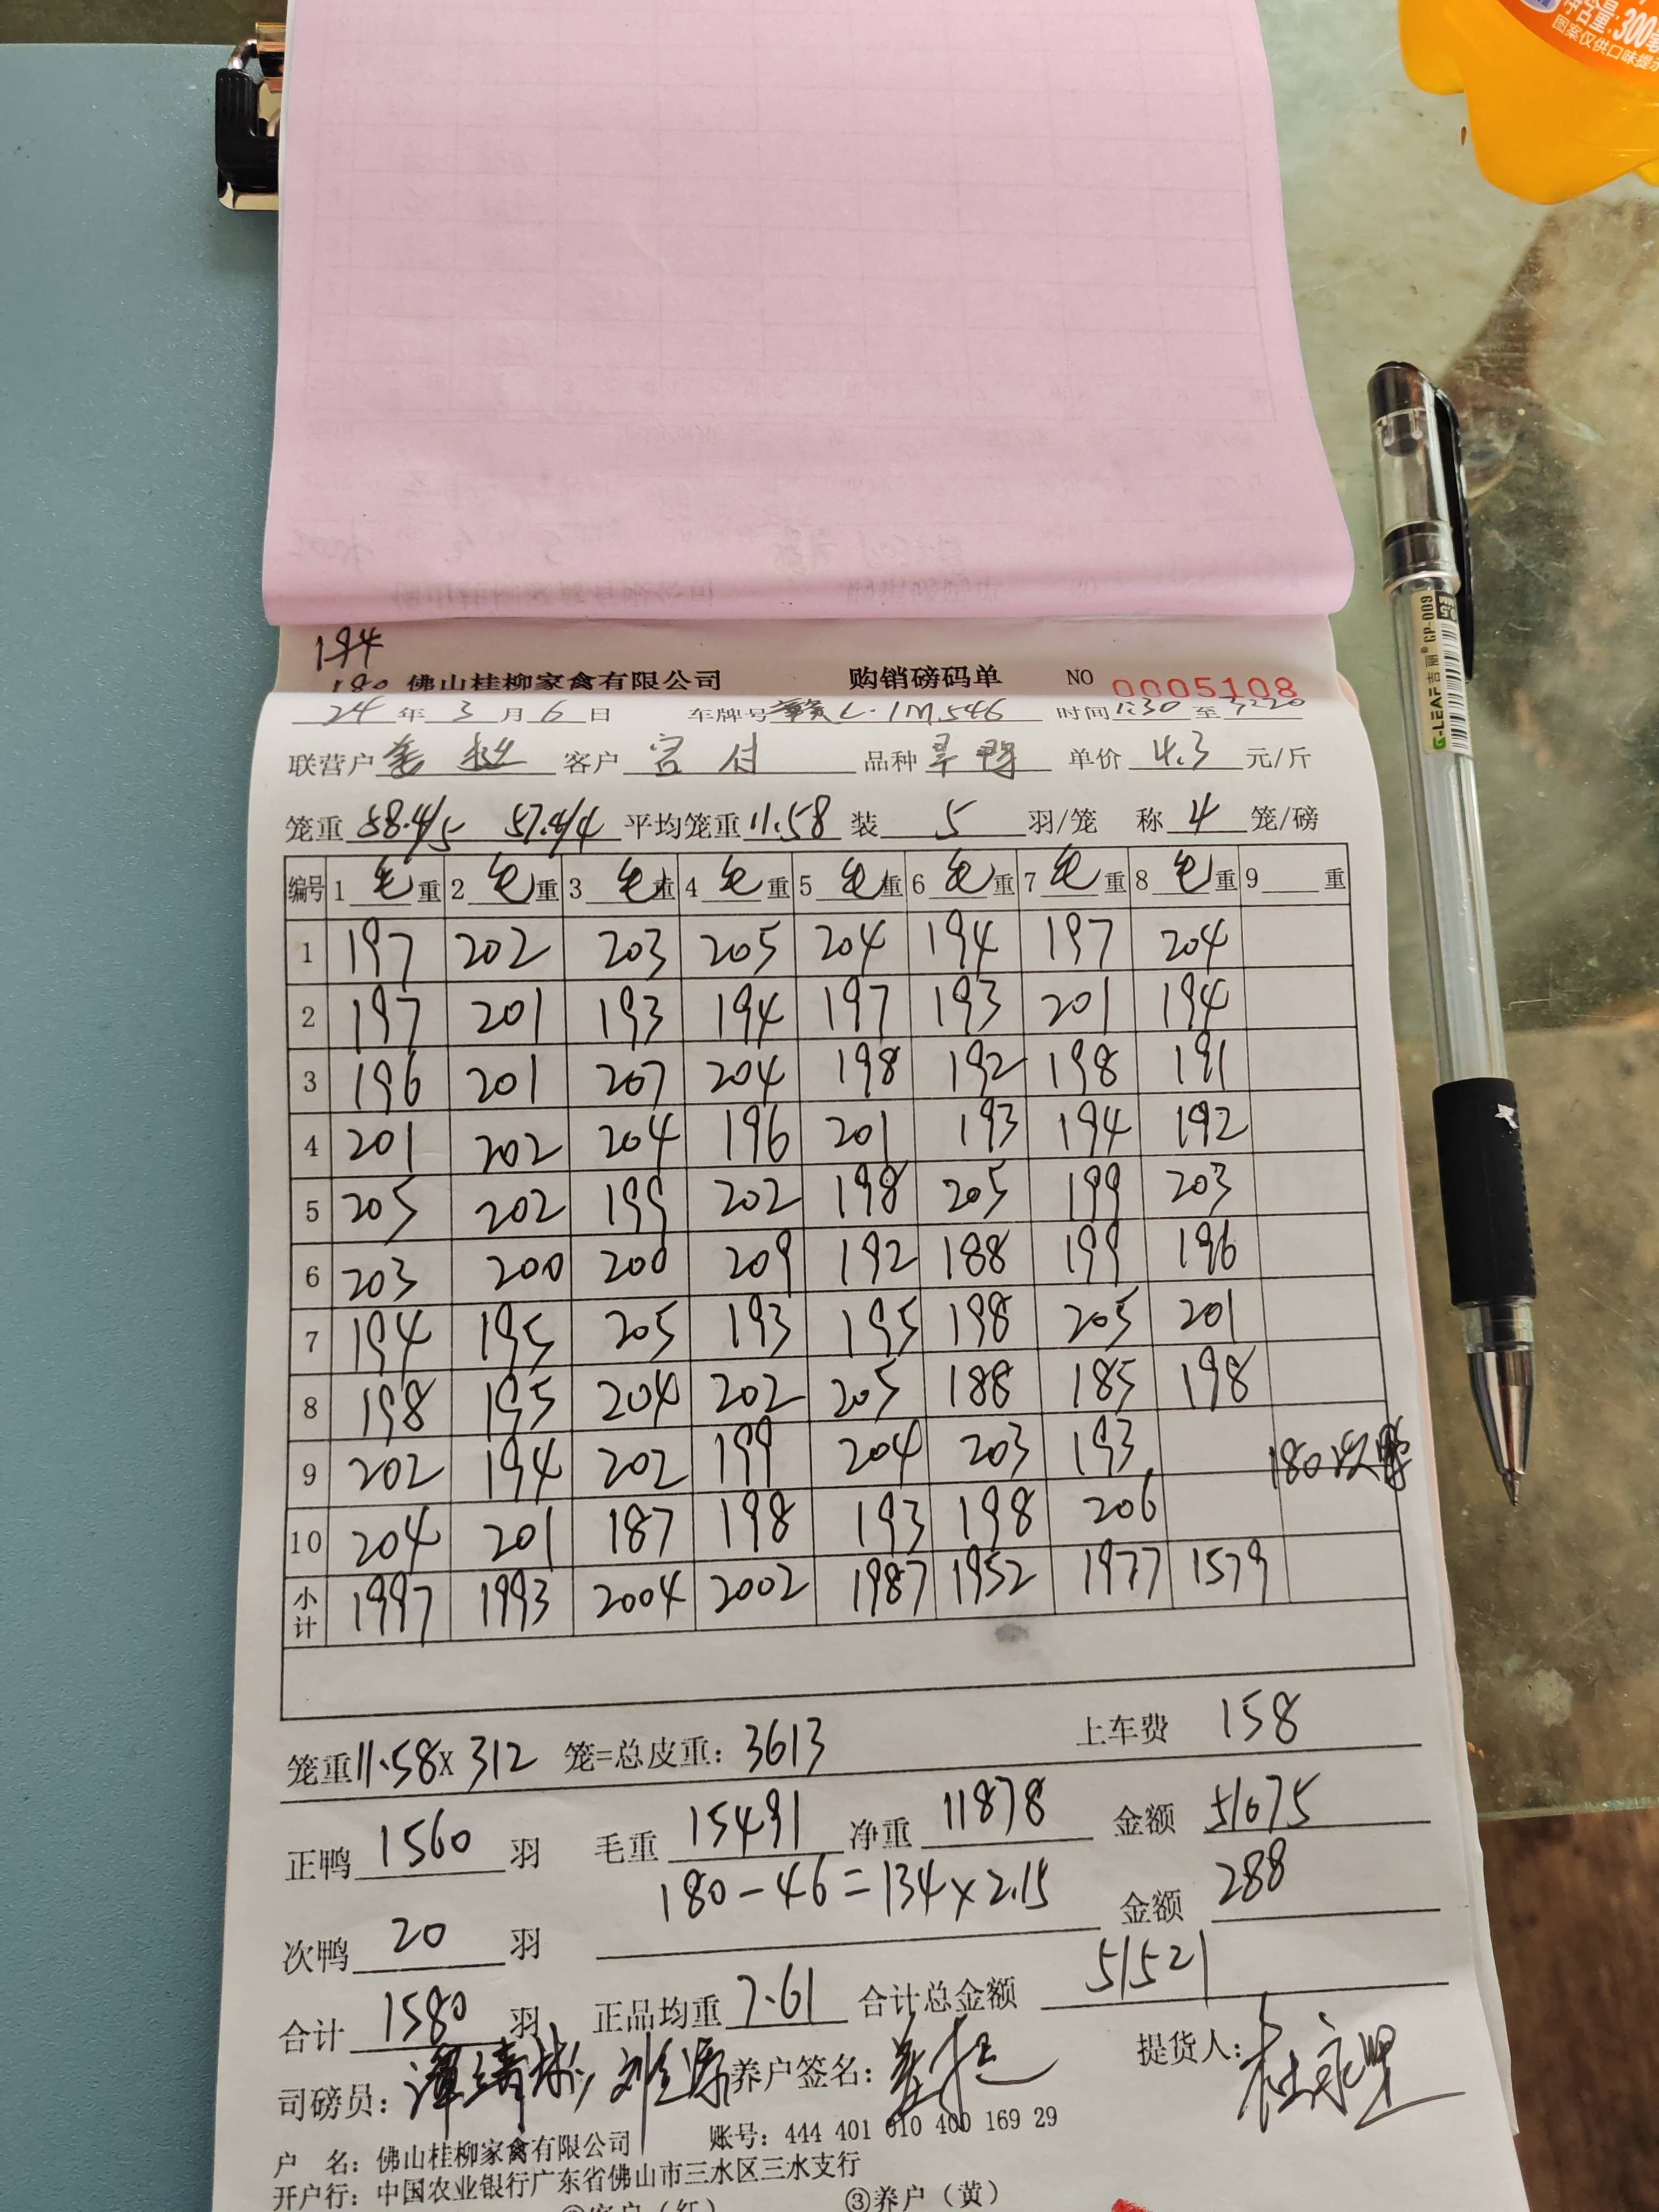 净含量:300毫
图案仅供口味提示
G-LEAF 吉丽® CP-009
194
180 佛山桂柳家禽有限公司 购销磅码单 NO 0005108
24 年 3 月 6 日 车牌号 赣L·1M546 时间 1:30 至 3:20
联营户 客户 富付 品种 旱鸭 单价 4.3 元/斤
笼重 58.4/5 57.4/4 平均笼重 11.58 装 5 羽/笼 称 4 笼/磅
编号 1 毛 重 2 毛 重 3 毛 重 4 毛 重 5 毛 重 6 毛 重 7 毛 重 8 毛 重 9 重
1 197 202 203 205 204 194 197 204
2 197 201 193 194 197 193 201 194
3 196 201 207 204 198 192 198 191
4 201 202 204 196 201 193 194 192
5 205 202 199 202 198 205 199 203
6 203 200 200 209 192 188 199 196
7 194 195 205 193 195 198 205 201
8 198 195 204 202 205 188 185 198
9 202 194 202 199 204 203 193 180次鸭
10 204 201 187 198 193 198 206
小计 1997 1993 2004 2002 1987 1952 1977 1579
笼重 11.58 x 312 笼=总皮重: 3613 上车费 158
正鸭 1560 羽 毛重 15491 净重 11878 金额 51075
次鸭 20 羽 180-46=134x2.15 金额 288
合计 1580 羽 正品均重 7.61 合计总金额 51521
司磅员: 养户签名: 提货人: 杜永坚
户 名: 佛山桂柳家禽有限公司 账号: 444 401 010 400 169 29
开户行: 中国农业银行广东省佛山市三水区三水支行
②客户(红) ③养户(黄)